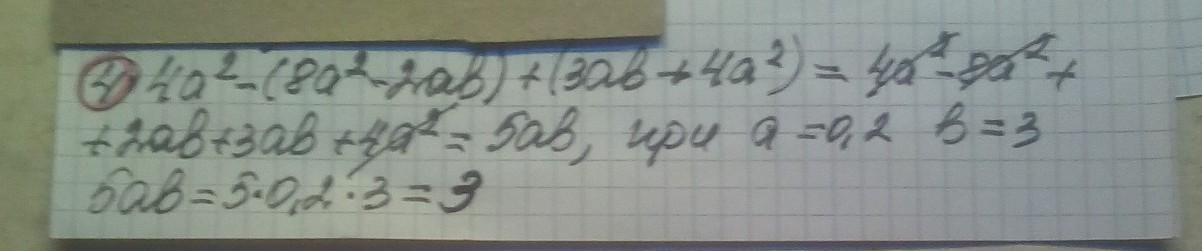 4) 4a² - (8a² - 2ab) + (3ab + 4a²) = 4a² - 8a² +
+ 2ab + 3ab + 4a² = 5ab, при a = 0,2 b = 3
5ab = 5·0,2·3 = 3